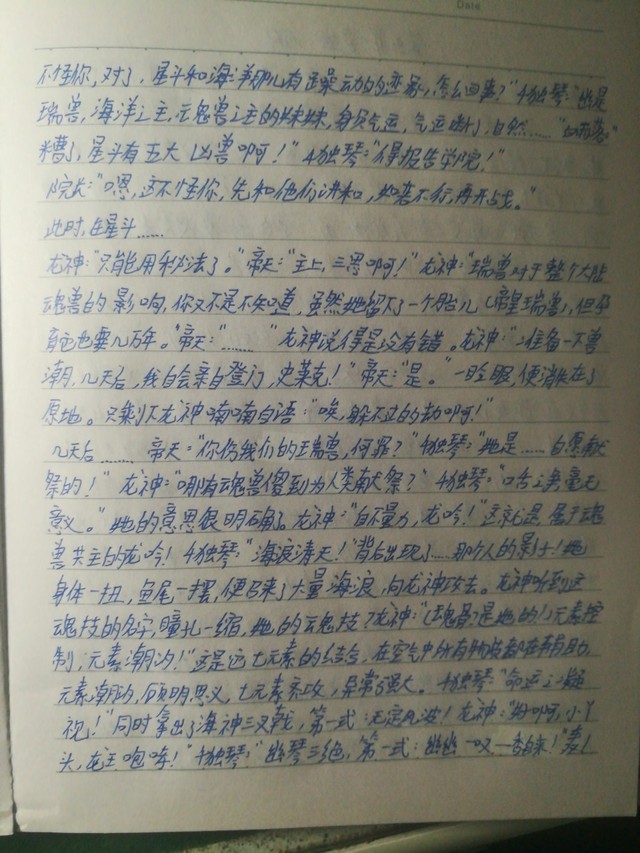 Date
不怪你,对了,星斗和海洋那儿有些躁动的迹象,怎么回事?"独琴:"她是
瑞兽,海洋之主,云鬼兽之主的妹妹,身负气运,气运断了,自然……"
糟了,星斗有五大凶兽啊!"独琴:"得报告学院!"
院长:"嗯,这不怪你,先和他们讲和,如若不行,再开战。"
此时,在星斗……
龙神:"只能用秘法了。"帝天:"主上,三思啊!"龙神:"瑞兽对于整个大陆
魂兽的影响,你又不是不知道,虽然她留下了一个胎儿(帝皇瑞兽),但孕
育它也要几万年。"帝天:"……"龙神说得是没有错。龙神:"准备一下兽
潮,几天后,我自会亲自登门,史莱克!"帝天:"是。"一眨眼,便消失在了
原地。只剩下龙神喃喃自语:"唉,躲不过的劫啊!"
几天后……帝天:"你伤我们的瑞兽,何罪?"独琴:"她是……自愿献
祭的!"龙神:"哪有魂兽傻到为人类献祭?"独琴:"口舌之争毫无
意义。"她的意思很明确了。龙神:"自不量力,龙吟!"这就是属于魂
兽共主的龙吟!独琴:"海浪涛天!"背后出现了……那个人的影子!她
身体一扭,鱼尾一摆,便召来了大量海浪,向龙神攻去。龙神听到这
魂技的名字,瞳孔一缩,她的魂技?龙神:"(魂骨?是她的!)元素控
制,元素潮汐!"这是远七元素的结合,在空气中所有物质都在帮助
元素潮汐,顾明思义,七元素齐攻,异常强大。独琴:"命运之凝
视!"同时拿出了海神三叉戟,第一式:无定风波!龙神:"好啊,小丫
头,龙王咆哮!"独琴:"幽琴三绝,第一式:幽幽一叹一香来!"凑!